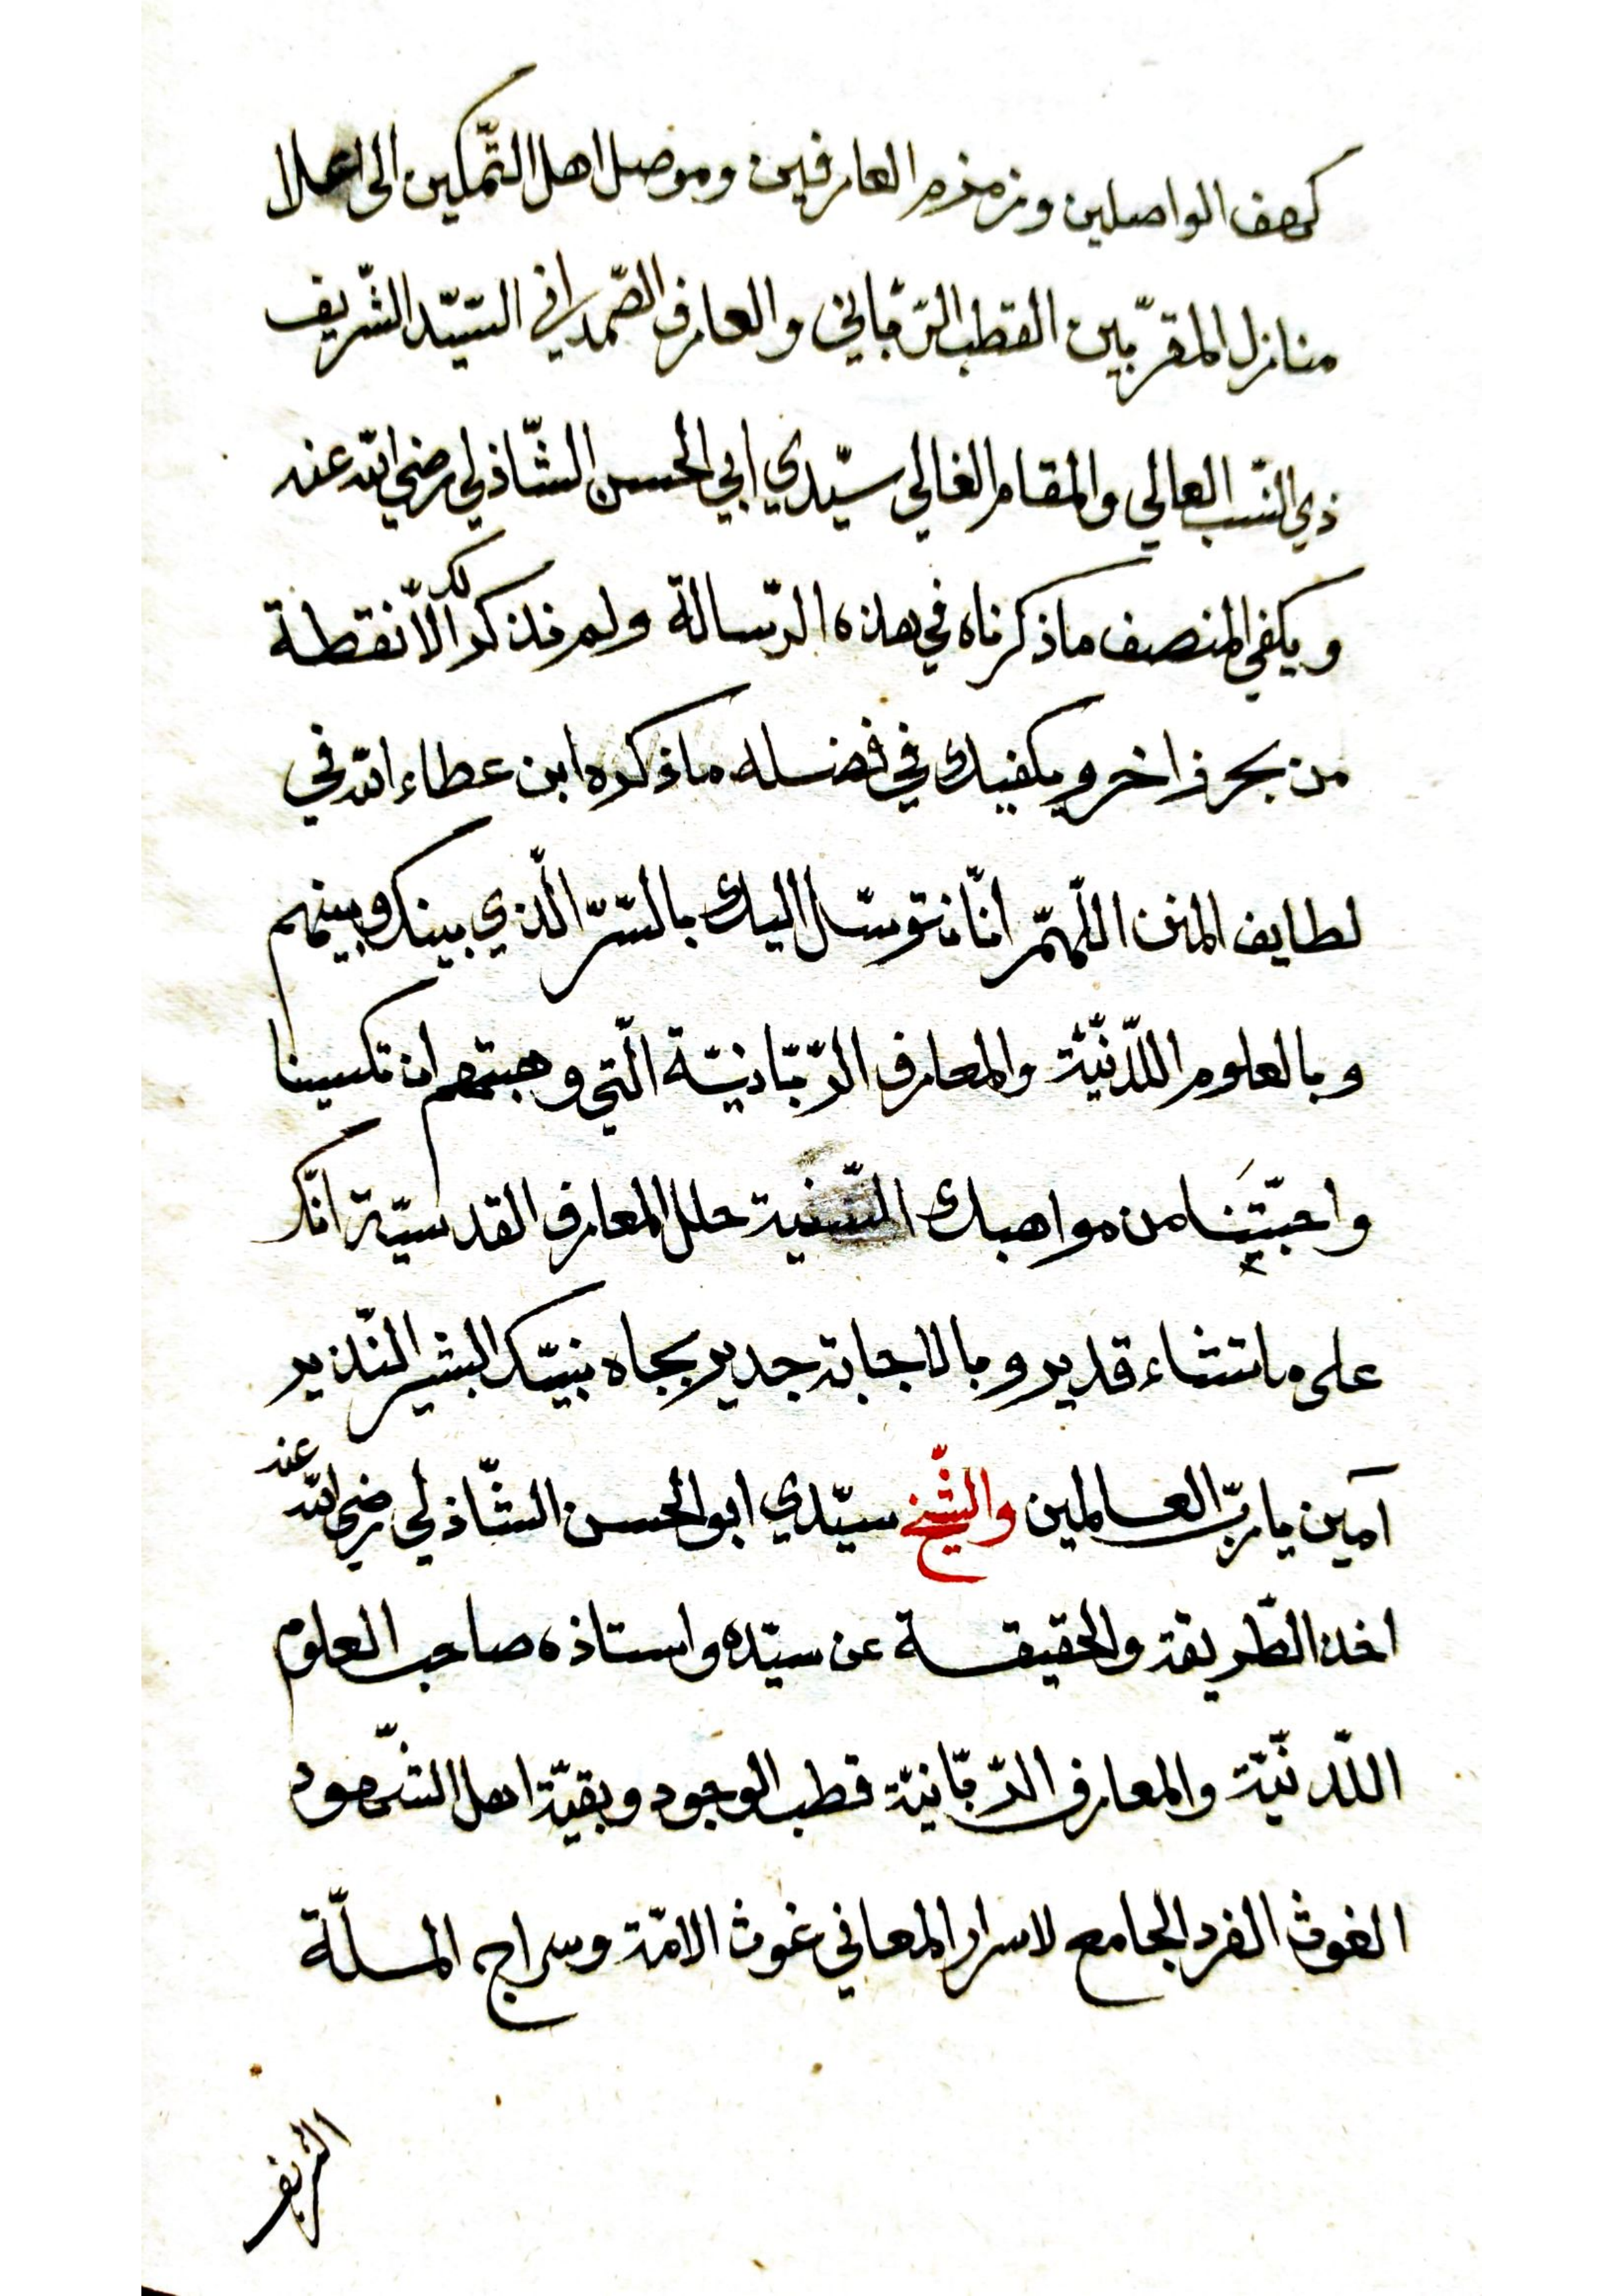 كهف الواصلين وزمزم العارفين وموصل اهل التّمكين الى اعلا
منازل المقرّبين القطب الرّبّاني والعارف الصّمداني السّيّد الشّريف
ذي النّسب العالي والمقام الغالي سيّدي ابي الحسن الشّاذلي رضي الله عنه
ويكفي المنصف ما ذكرناه في هذه الرّسالة ولم نذكر لك الّا نقطة
من بحر زاخر ويكفيك في فضله ما ذكره ابن عطاء الله في
لطايف المنن اللّهمّ انّا نتوسّل اليك بالسّرّ الّذي بينك وبينهم
وبالعلوم اللّدنّيّة والمعارف الرّبّانيّة الّتي وهبتهم ان تكسينا
واحبّتِنَا من مواهبك السّنية حلل المعارف القدسيّة انّك
على ما تشاء قدير وبالاجابة جدير بجاه نبيّك البشير النّذير
آمين يا ربّ العالمين والشّيخ سيّدي ابو الحسن الشّاذلي رضي الله عنه
اخذ الطّريقة والحقيقة عن سيّده واستاذه صاحب العلوم
اللّدنّيّة والمعارف الرّبّانيّة قطب الوجود وبقيّة اهل الشّهود
الغوث الفرد الجامع لاسرار المعاني غوث الامّة وسراج الملّة